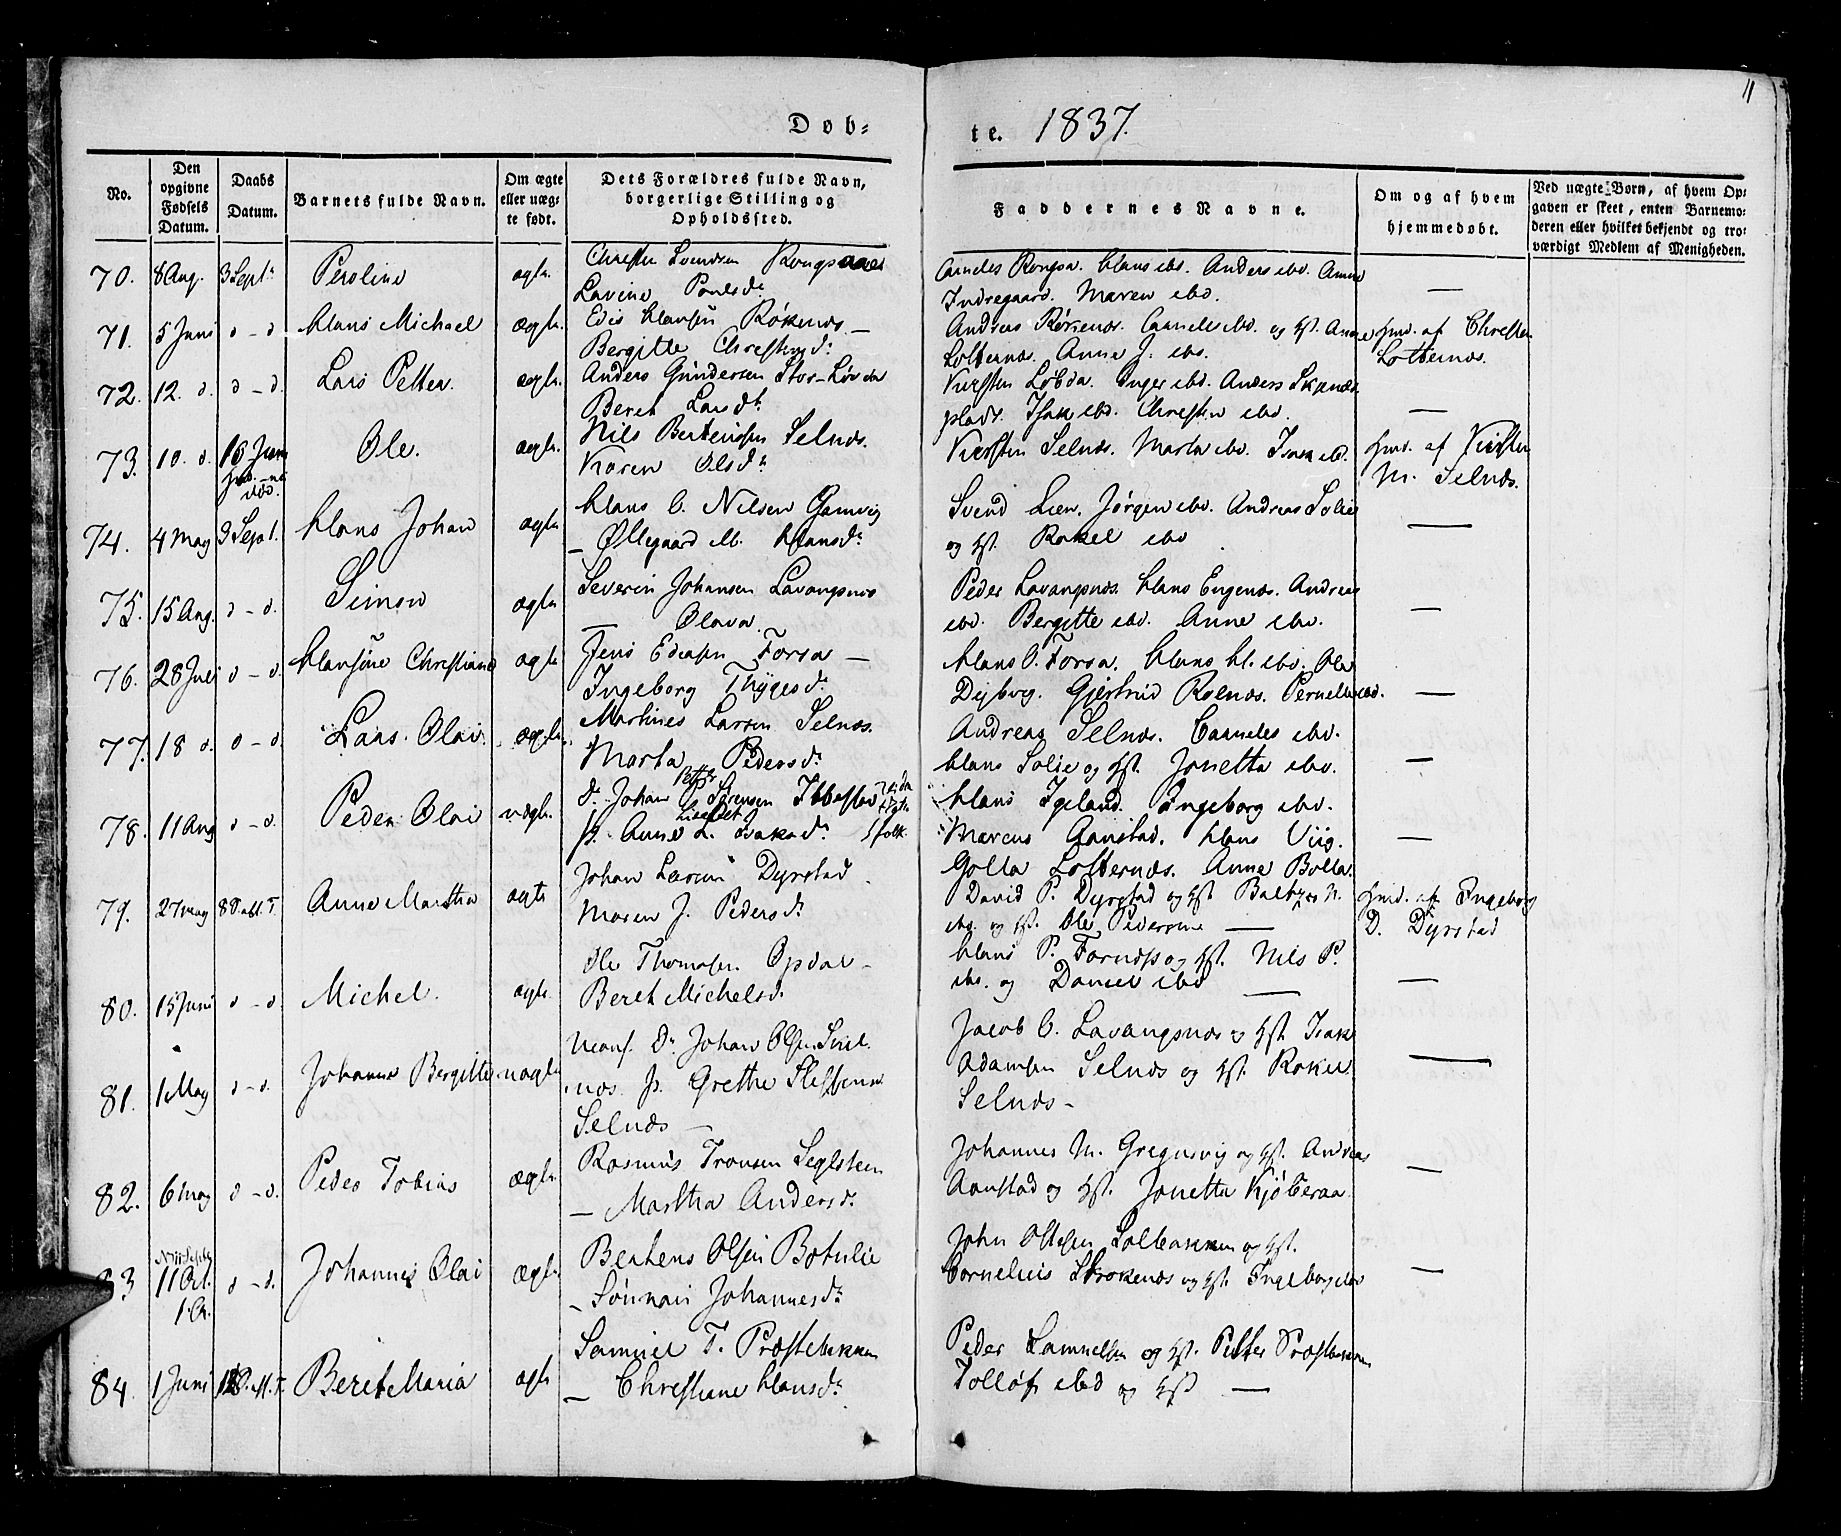 11
Døb-
te. 1837.
No.
Den opgivne Fødsels Datum.
Daabs Datum.
Barnets fulde Navn.
Om ægte eller uæg-te født.
Dets Forældres fulde Navn, borgerlige Stilling og Opholdsted.
Faddernes Navne.
Om og af hvem hjemmedøbt.
Ved uægte Børn, af hvem Op-gaven er skeet, enten Barnemo-deren eller hvilket bekjendt og tro-værdigt Medlem af Menigheden.
70. 8 Aug. 3 Sept. Peroline ægte
Lavine Poulsd.
Hans ibd. Anders ibd. Anne
Indregaard. Maren ibd. —
71. 5 Juni d - d. Hans Michael ægte.
Edis Hansen Røkenes —
Bergitte Christensd.
Andreas Røkenes. Corneles ibd. og Hst. Anne
Lokternæs. Anne J. ibd.
Hmd. af Christen
Loktернæs.
72. 12. d. d - d. Lars Petter. ægte.
Anders Gundersen Stor-Løvda
Beret Larsd.
Kiersten Løbda. Inger ibd. Anders Skanæs
plads. Isak ibd. Christen ibd. —
73. 10. d. 16 Juni Ole. ægte.
Nils Bertensen Selnæs.
Karen Olsd.
Kiersten Selnæs. Marta ibd. Isak ibd.
Hmd. af Kirsten
M. Selnæs.
74. 4 May 3 Sept. Hans Johan ægte
Hans C. Nilsen Gamvig
— Øllegaard M. Hansd.
Svend Lien. Jørgen ibd. Andreas Solie
og Hst. Rakel ibd —
75. 15 Aug. d - d. Simon ægte
Severin Johansen Lavangsnæs
— Olava.
Peder Lavangsnæs. Hans Engenæs. Andreas
ibd. Bergitte ibd. Anne ibd. —
76. 28 Juli d - d. Hansine Christiane ægte
Jens Edisen Forsa —
Ingeborg Thygesd.
Hans O. Forsa. Hans H. ibd. Ole
Dybvig. Gjertrud Rolnæs. Pernelle ibd. —
77. 18 d. d - d. Lars Olai. ægte.
Martines Larsen Selnæs.
Marta Pedersd.
Andreas Selnæs. Corneles ibd.
Hans Solie og Hst. Jonetta ibd. —
78. 11 Aug d - d. Peder Olai uægte.
D. Johan Petter Sørensen Ibbestad
P. Anne L. Isaksd. folk.
Hans Igeland. Ingeborg ibd.
Marcus Aanstad. Hans Viig. —
Golla Loktернæs. Anne Bolla.
79. 27 May 8 S. aft. T. Anne Martha ægte
Johan Larsen Dyrstad
Maren J. Pedersd.
David P. Dyrstad og Hst Baltzer N.
ibd. og Hst. Ole Pedersen —
Hmd. af Ingeborg
D. Dyrstad
80. 15 Juni d - d. Michel. ægte.
Ole Thomasen Opdal —
Beret Michelsd.
Hans P. Fornæs og Hst. Nils P.
ibd. og Daniel ibd — —
81. 1 May d - d. Johanne Bergitte uægte
Uconf. D. Johan Olsen Sul-
næs P. Grethe Steffens
Selnæs —
Jacob C. Lavangsnæs og Hst Isak
Adamsen Selnæs og Hst. Rakel
Selnæs — —
82. 6 May d - d. Peder Tobias ægte
Rasmus Tronsen Seglsteen
— Martha Andersd.
Johannes M. Gregusvig og Hst. Andreas
Aanstad og Hst. Jonetta Kjøberaa —
83 11 Oct. d - d. Johannes Olai ægte
Bertens Olsen Botnlie
— Sønnau Johannesd.
John Ottesen Lolbakken og Hst.
Cornelius Strokenæs og Hst. Ingeborg ibd —
84. 1 Juni S. aft. T. Beret Maria ægte
Samuel T. Præstebakken
— Christiane Hansd.
Peder Samuelsen og Hst. Petter Præstbakken
Tolløf ibd og Hst —